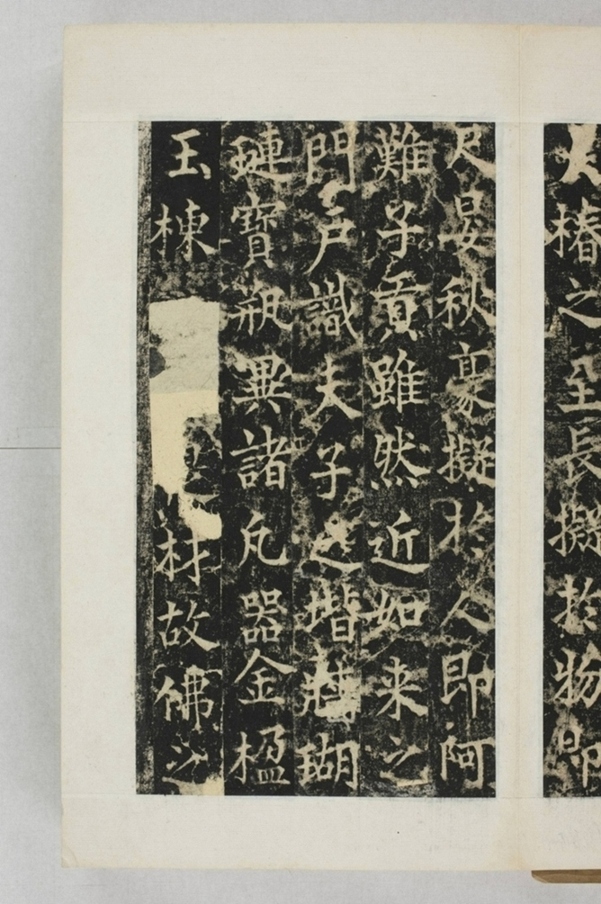 大椿之至長擬於物即
尺晏秋豪擬於人即阿
難子貢雖然近如来之
門戶識夫子之堦瑚
璉寶瓶異諸凡器金楹
玉棟材故佛之